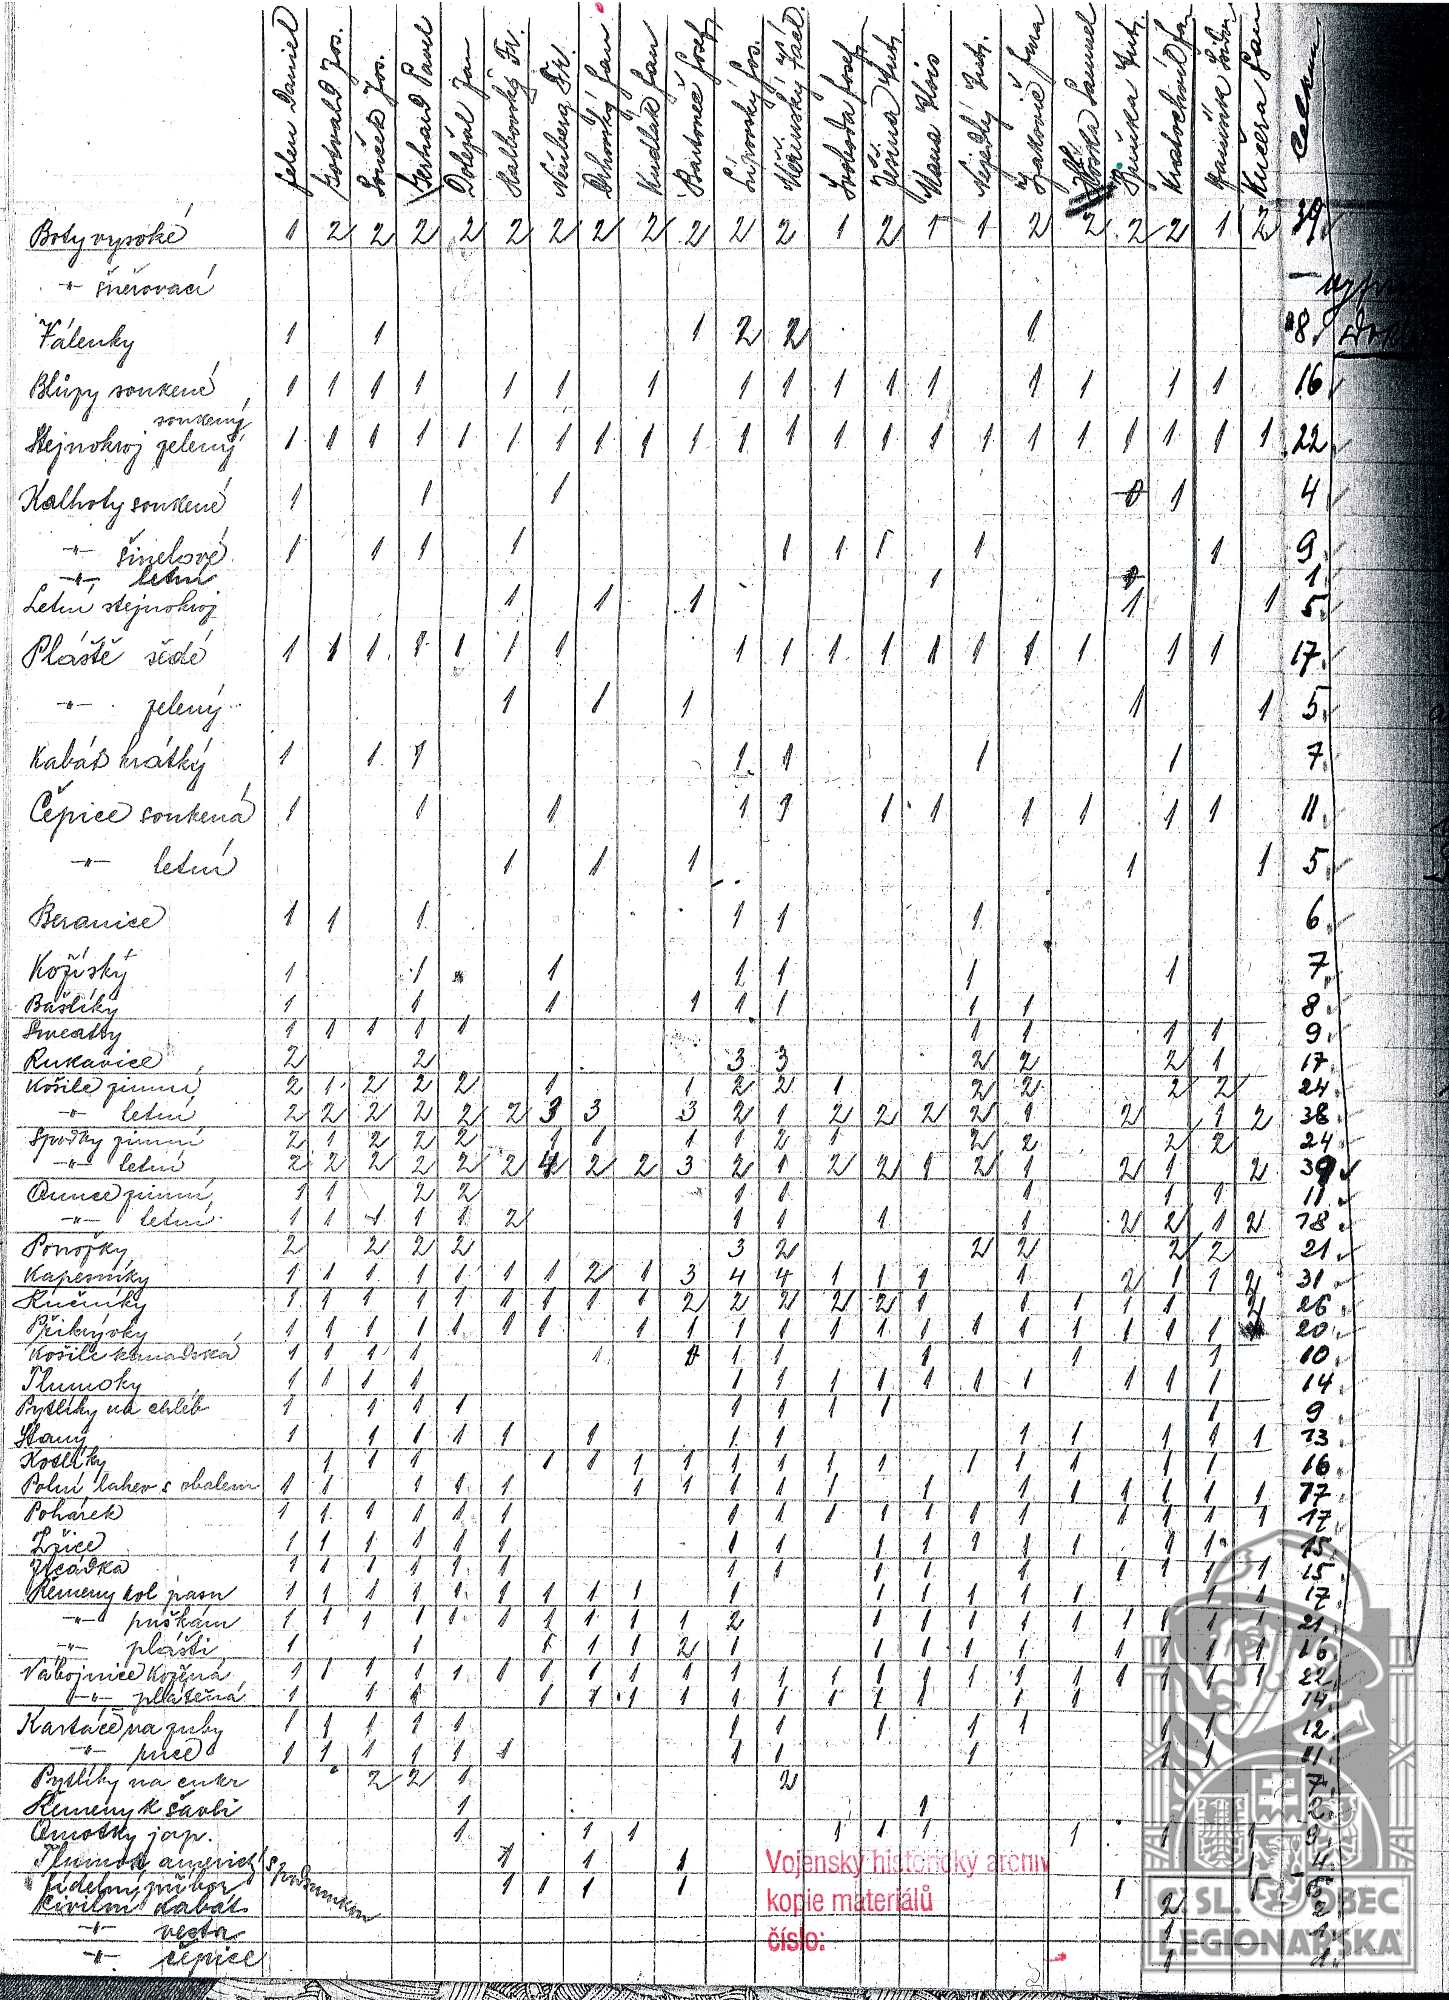 Jelen Daniel
Gottwald Jos.
Souček Jos.
Gerhard Pavel
Dolejšal Jan
Kalbovský Fr.
Neuberg Fr.
Kudlák Jan
Bartoněč Josef
Lipovský Jos.
Svoboda Josef
Jesina Ant.
Kana Alois
Nejedlý Ant.
Samuel
Špička Ant.
Kratochvíl Jan
Kučera Jan
Celkem
Boty vysoké 1 2 2 2 2 2 2 2 2 2 2 2 1 2 1 1 2 2 2 2 1 2 39
-"- šněrovací –
Válenky 1 1 1 2 2 1 8
Blůzy soukené 1 1 1 1 1 1 1 1 1 1 1 1 1 1 1 1 16
soukený
Stejnokroj zelený 1 1 1 1 1 1 1 1 1 1 1 1 1 1 1 1 1 1 1 1 1 1 22
Kalhoty soukené 1 1 1 1 4
-"- šinelové 1 1 1 1 1 1 1 1 1 9
-"- letní 1 1
Letní stejnokroj 1 1 1 1 1 5
Pláště šedé 1 1 1 1 1 1 1 1 1 1 1 1 1 1 1 1 1 17
-"- zelený 1 1 1 1 1 5
Kabát krátký 1 1 1 1 1 1 1 7
Čepice soukená 1 1 1 1 1 1 1 1 1 1 1 11
-"- letní 1 1 1 1 1 5
Beranice 1 1 1 1 1 1 6
Kožíšky 1 1 1 1 1 1 1 7
Bašlíky 1 1 1 1 1 1 1 1 8
Sweatry 1 1 1 1 1 1 1 1 1 9
Rukavice 2 2 3 3 2 2 2 1 17
Košile zimní 2 1 2 2 2 1 1 2 2 1 2 2 2 2 24
-"- letní 2 2 2 2 2 2 3 3 3 2 1 2 2 2 2 1 2 1 2 38
Spodky zimní 2 1 2 2 2 1 1 1 1 2 1 2 2 2 2 24
-"- letní 2 2 2 2 2 2 4 2 2 3 2 1 2 2 1 2 1 2 1 2 39
Onuce zimní 1 1 2 2 1 1 1 1 1 11
-"- letní 1 1 1 1 1 2 1 1 1 1 2 2 1 2 18
Ponožky 2 2 2 2 3 2 2 2 2 2 21
Kapesníky 1 1 1 1 1 1 1 2 1 3 4 4 1 1 1 1 2 1 1 2 31
Ručníky 1 1 1 1 1 1 1 1 1 2 2 2 2 2 1 1 1 1 1 2 26
Přikrývky 1 1 1 1 1 1 1 1 1 1 1 1 1 1 1 1 1 1 1 1 20
Košile kanadská 1 1 1 1 1 1 1 1 1 1 10
Tlumoky 1 1 1 1 1 1 1 1 1 1 1 1 1 1 14
Pytlíky na chléb 1 1 1 1 1 1 1 1 1 9
Stany 1 1 1 1 1 1 1 1 1 1 1 1 1 13
Kotlíky 1 1 1 1 1 1 1 1 1 1 1 1 1 1 1 1 16
Polní lahev s obalem 1 1 1 1 1 1 1 1 1 1 1 1 1 1 1 1 1 17
Pohárek 1 1 1 1 1 1 1 1 1 1 1 1 1 1 1 1 1 17
Lžice 1 1 1 1 1 1 1 1 1 1 1 1 1 1 1 15
1 1 1 1 1 1 1 1 1 1 1 1 1 1 1 15
Řemeny kol pasu 1 1 1 1 1 1 1 1 1 1 1 1 1 1 1 1 1 17
-"- puškám 21
-"- plášti 16
Nábojnice kožená 1 1 1 1 1 1 1 1 1 1 1 1 1 1 1 1 1 1 1 1 1 1 22
-"- plátěná 14
Kartáče na zuby 1 1 1 1 1 1 1 1 1 1 1 1 12
-"- 1 1 1 1 1 1 1 1 1 1 1 11
Pytlíky na cukr 2 2 1 2 7
Řemeny k šavli 1 1 2
Omotky jap. 1 1 1 1 1 1 1 1 1 9
Tlumok americký s podsumkou 1 1 1 1 4
Jídelní příbor 1 1 1 1 1 1 6
Civilní kabát 2 2
-"- vesta 1 1
-"- čepice 1 1
Vojenský historický archiv
kopie materiálů
číslo:
Č. SL. OBEC
LEGIONÁŘSKÁ